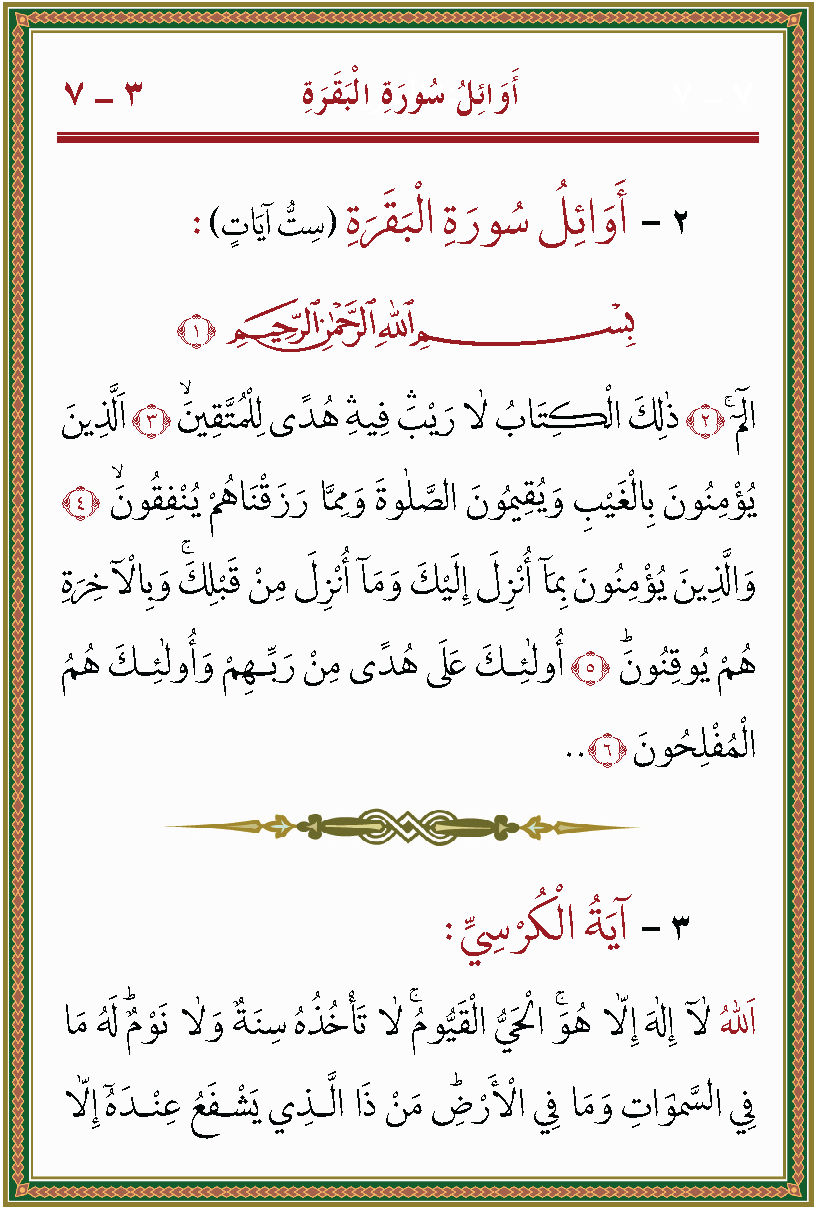 أَوَائِلُ سُورَةِ الْبَقَرَةِ ٣ – ٧
٢ – أَوَائِلُ سُورَةِ الْبَقَرَةِ (سِتُّ آيَاتٍ) :
بِسْمِ ٱللّٰهِ ٱلرَّحْمٰنِ ٱلرَّحِيمِ ﴿١﴾
الٓمٓ ۚ ﴿٢﴾ ذٰلِكَ الْكِتَابُ لَا رَيْبَ ۛ فِيهِ ۛ هُدًى لِلْمُتَّقِينَ ۙ ﴿٣﴾ اَلَّذِينَ
يُؤْمِنُونَ بِالْغَيْبِ وَيُقِيمُونَ الصَّلٰوةَ وَمِمَّا رَزَقْنَاهُمْ يُنْفِقُونَ ۙ ﴿٤﴾
وَالَّذِينَ يُؤْمِنُونَ بِمَآ أُنْزِلَ إِلَيْكَ وَمَآ أُنْزِلَ مِنْ قَبْلِكَ ۚ وَبِالْآخِرَةِ
هُمْ يُوقِنُونَ ؕ ﴿٥﴾ أُولٰئِكَ عَلَى هُدًى مِنْ رَبِّهِمْ وَأُولٰئِكَ هُمُ
الْمُفْلِحُونَ ﴿٦﴾..
٣ – آيَةُ الْكُرْسِيِّ :
اَللّٰهُ لَآ إِلٰهَ إِلَّا هُوَ ۚ الْحَيُّ الْقَيُّومُ ۚ لَا تَأْخُذُهُ سِنَةٌ وَلَا نَوْمٌ ؕ لَهُ مَا
فِي السَّمٰوَاتِ وَمَا فِي الْأَرْضِ ؕ مَنْ ذَا الَّذِي يَشْفَعُ عِنْدَهُٓ إِلَّا